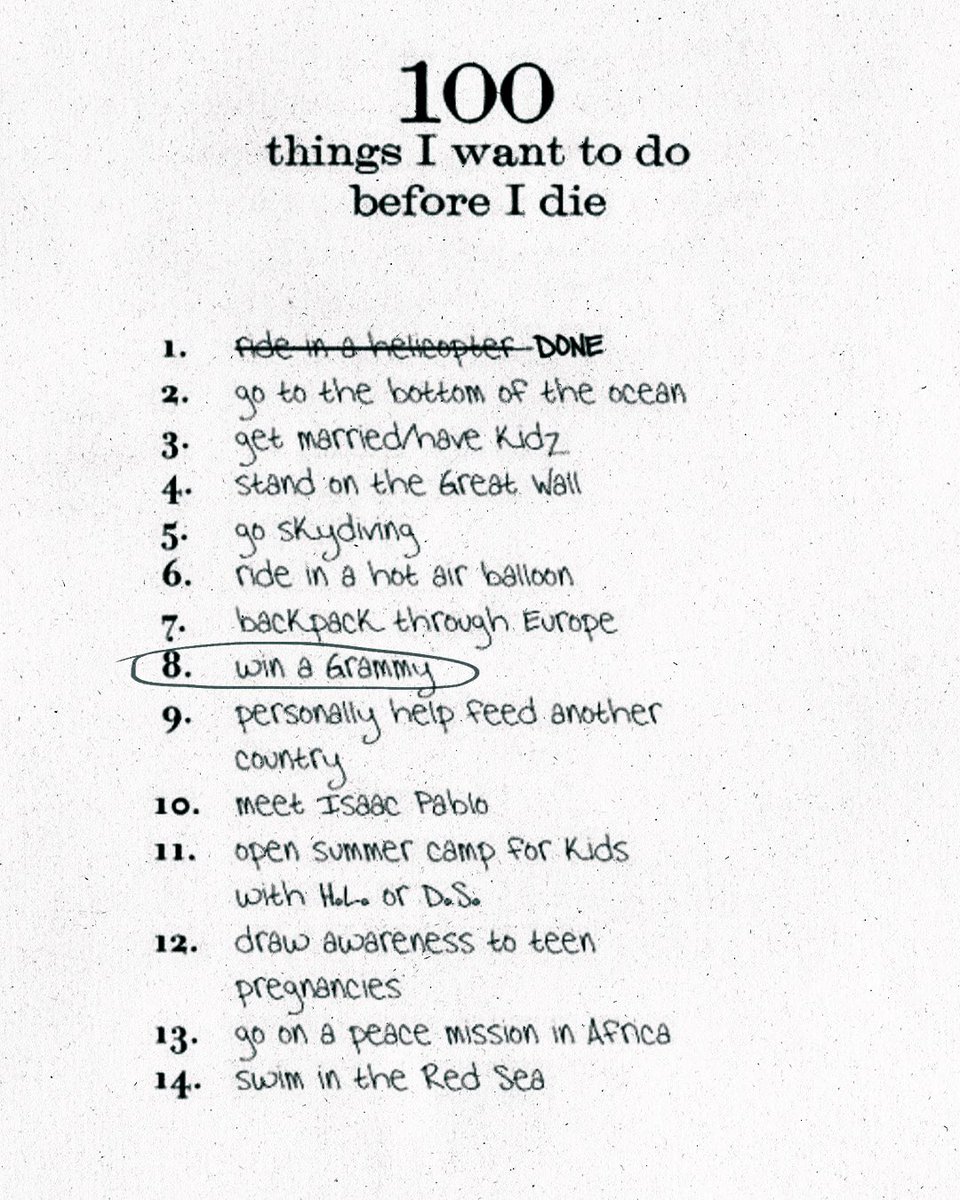 100
things I want to do
before I die
1. ride in a helicopter DONE
2. go to the bottom of the ocean
3. get married/have Kidz
4. stand on the Great Wall
5. go skydiving
6. ride in a hot air balloon
7. backpack through Europe
8. win a Grammy
9. personally help feed another
country
10. meet Isaac Pablo
11. open summer camp for Kids
with H.L. or D.S.
12. draw awareness to teen
pregnancies
13. go on a peace mission in Africa
14. swim in the Red Sea